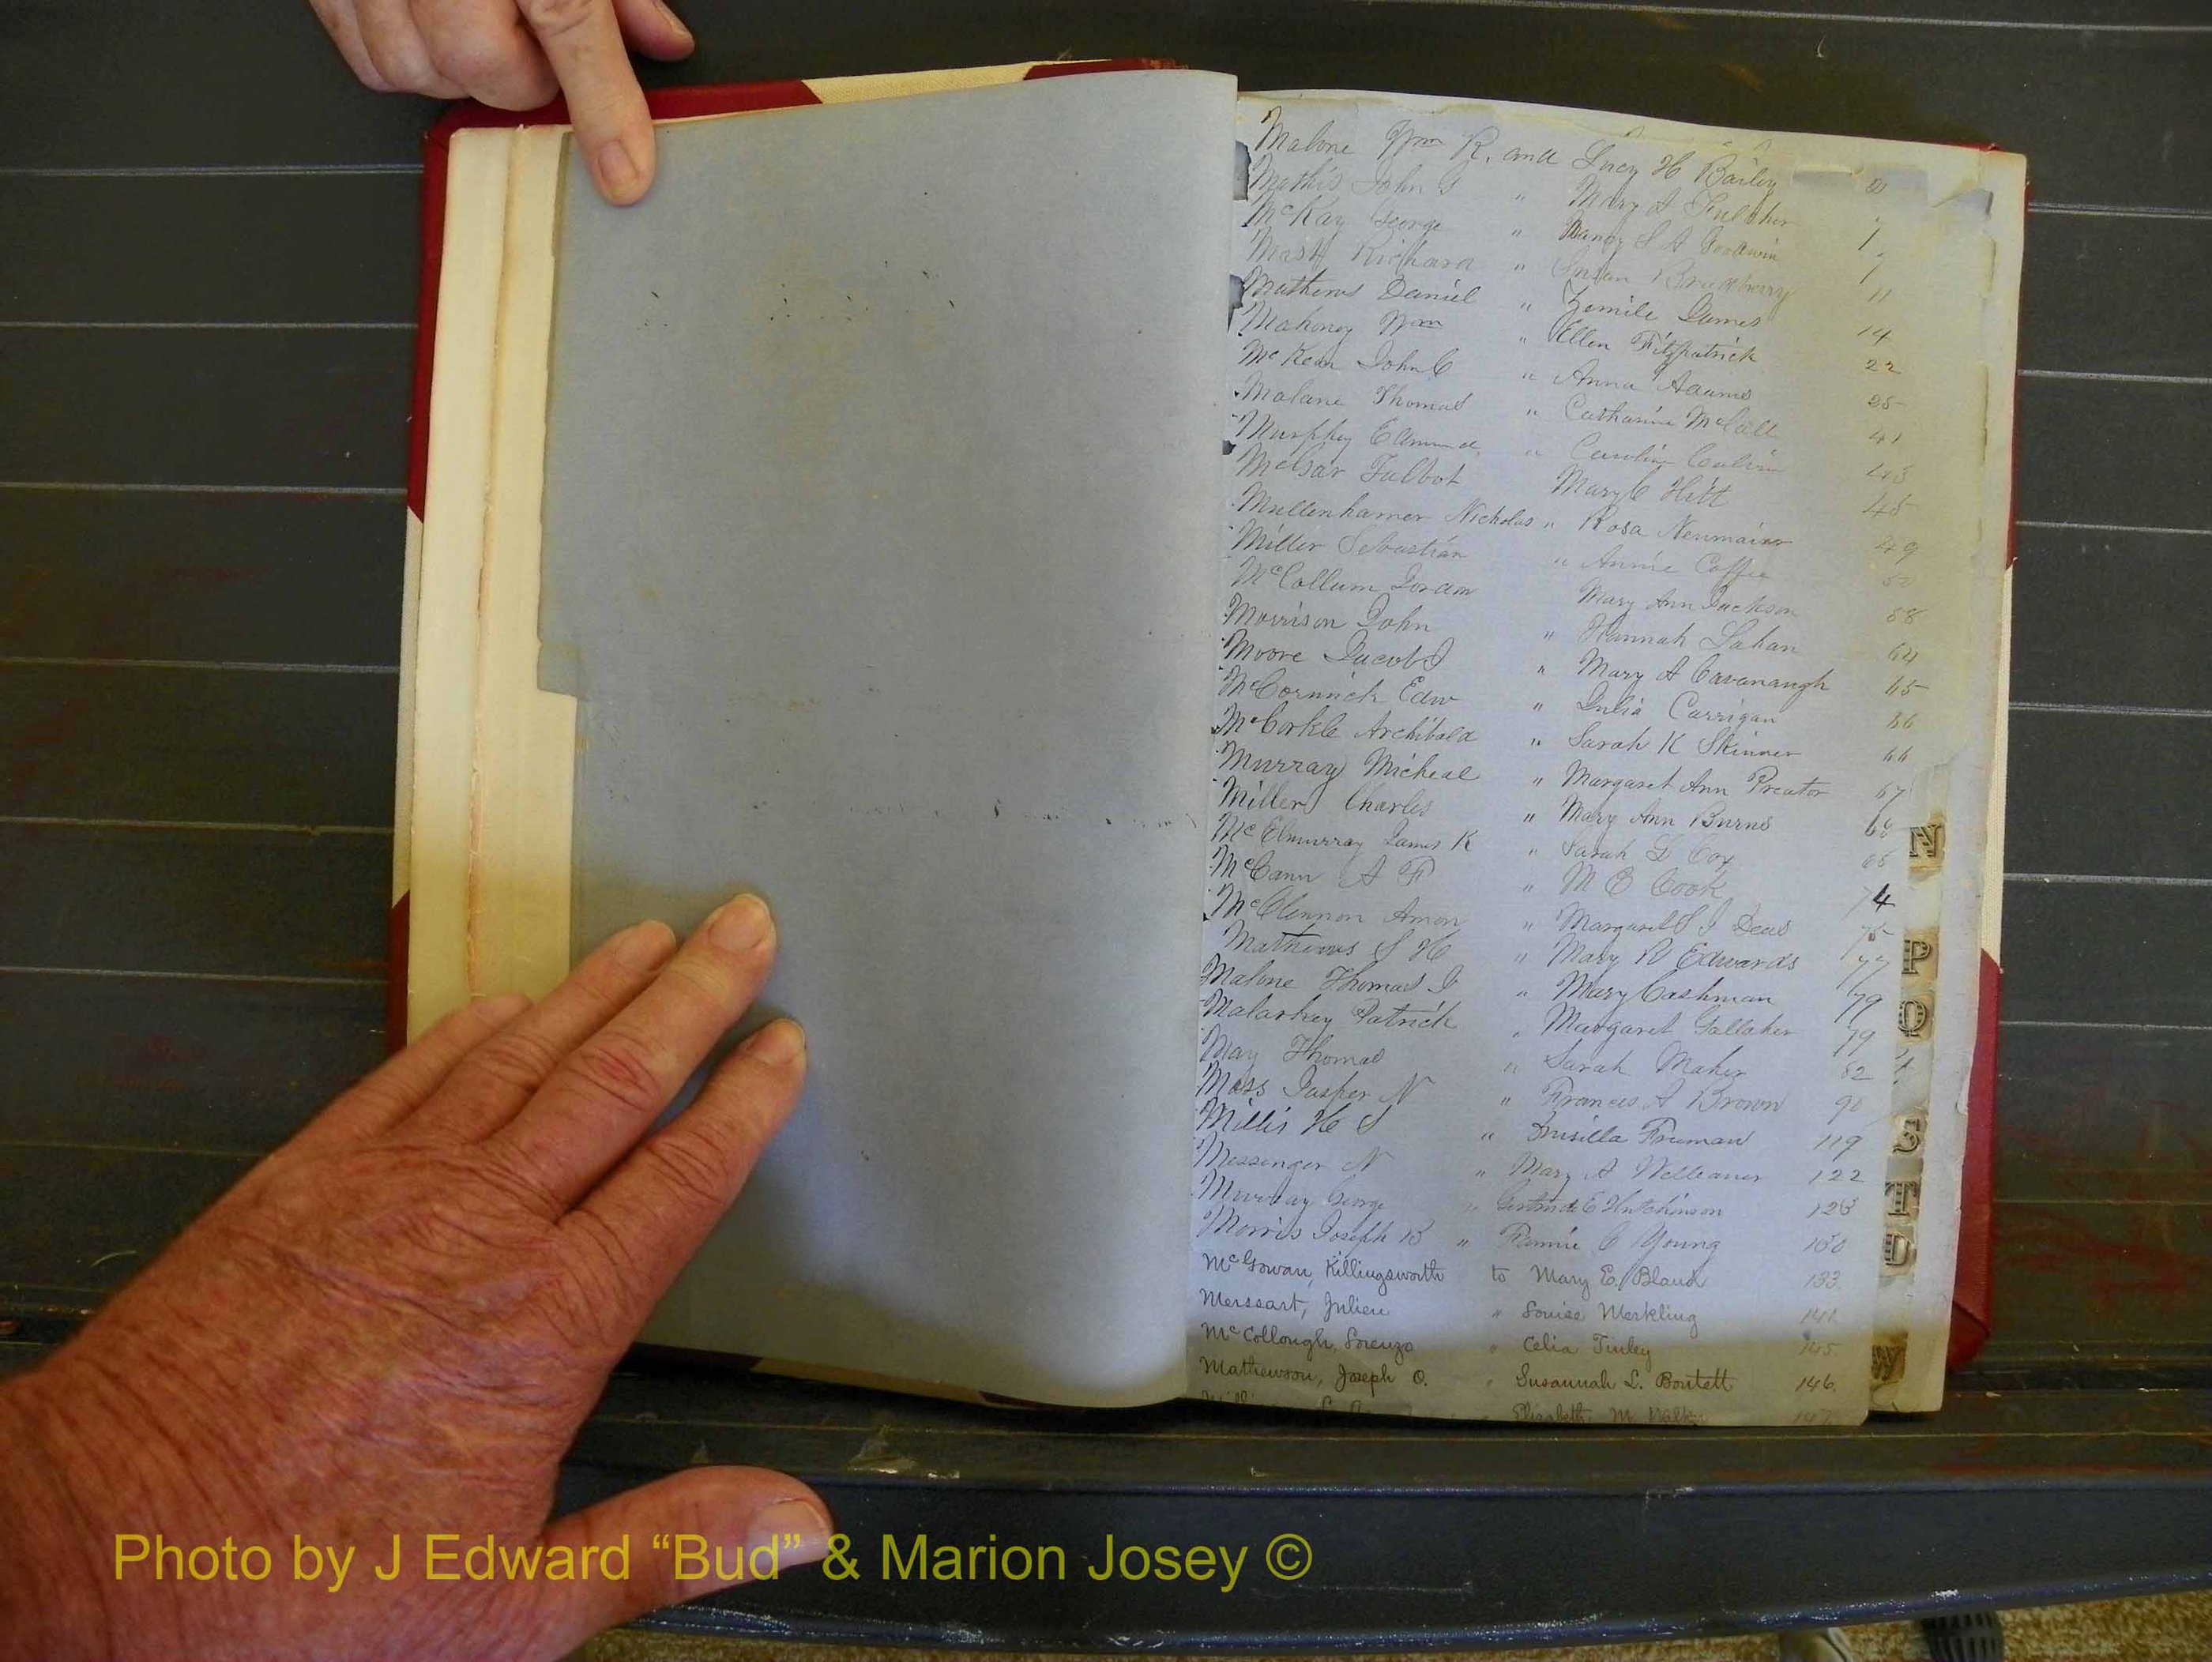 Malone Wm R. and Lucy H Bailey 2
Mathis John S " Mary A Fulcher 7
McKay George " Nancy S A Goodwin 7
Richard " Susan Bradberry 11
Mathews Daniel " James 14
Mahoney Wm " Ellen Fitzpatrick 22
McKean John C " Anna Adams 25
Malane Thomas " Catharine McCall 41
Murphey Edmund " Caroline Calvin 43
McGar Talbot Mary C Hitt 45
Mullenhamer Nicholas " Rosa Neumaier 49
Miller Sebastian " Annie Coffee
McCollum Joram Mary Ann Jackson 58
Morrison John " Hannah Lahan 64
Moore Jacob J " Mary A Cavanaugh 65
McCormick Edw " Julia Carrigan 66
McCorkle Archibald " Sarah K Skinner 66
Murray Micheal " Margaret Ann Preator 67
Miller Charles " Mary Ann Burns 68
McElmurray James K " Sarah Cox 68
McCann A F " M E Cook 74
McClennon Amon " Margaret 75
Mathews S H " Mary R Edwards 77
Malone Thomas J " Mary Cashman 79
Malarkey Patrick " Margaret Gallaher 79
May Thomas " Sarah Maher 82
Moss Jasper N " Frances A Brown 90
Millis H S " Prisilla Fruman 119
Messenger N " Mary A 122
Murray George " Gertrude E Hutchinson 123
Morris Joseph B " Fannie C Young 130
McGowan, Killingsworth to Mary E. Bland 133.
Merssart, Julien " Louise Merkling 141.
McCollough, Lorenzo " Celia Tinley 145
Mathewson, Joseph O. " Susannah L. Boutett 146.
Elizabeth M. Walker 147.
N
P
Q
S
T
U
W
Photo by J Edward “Bud” & Marion Josey ©